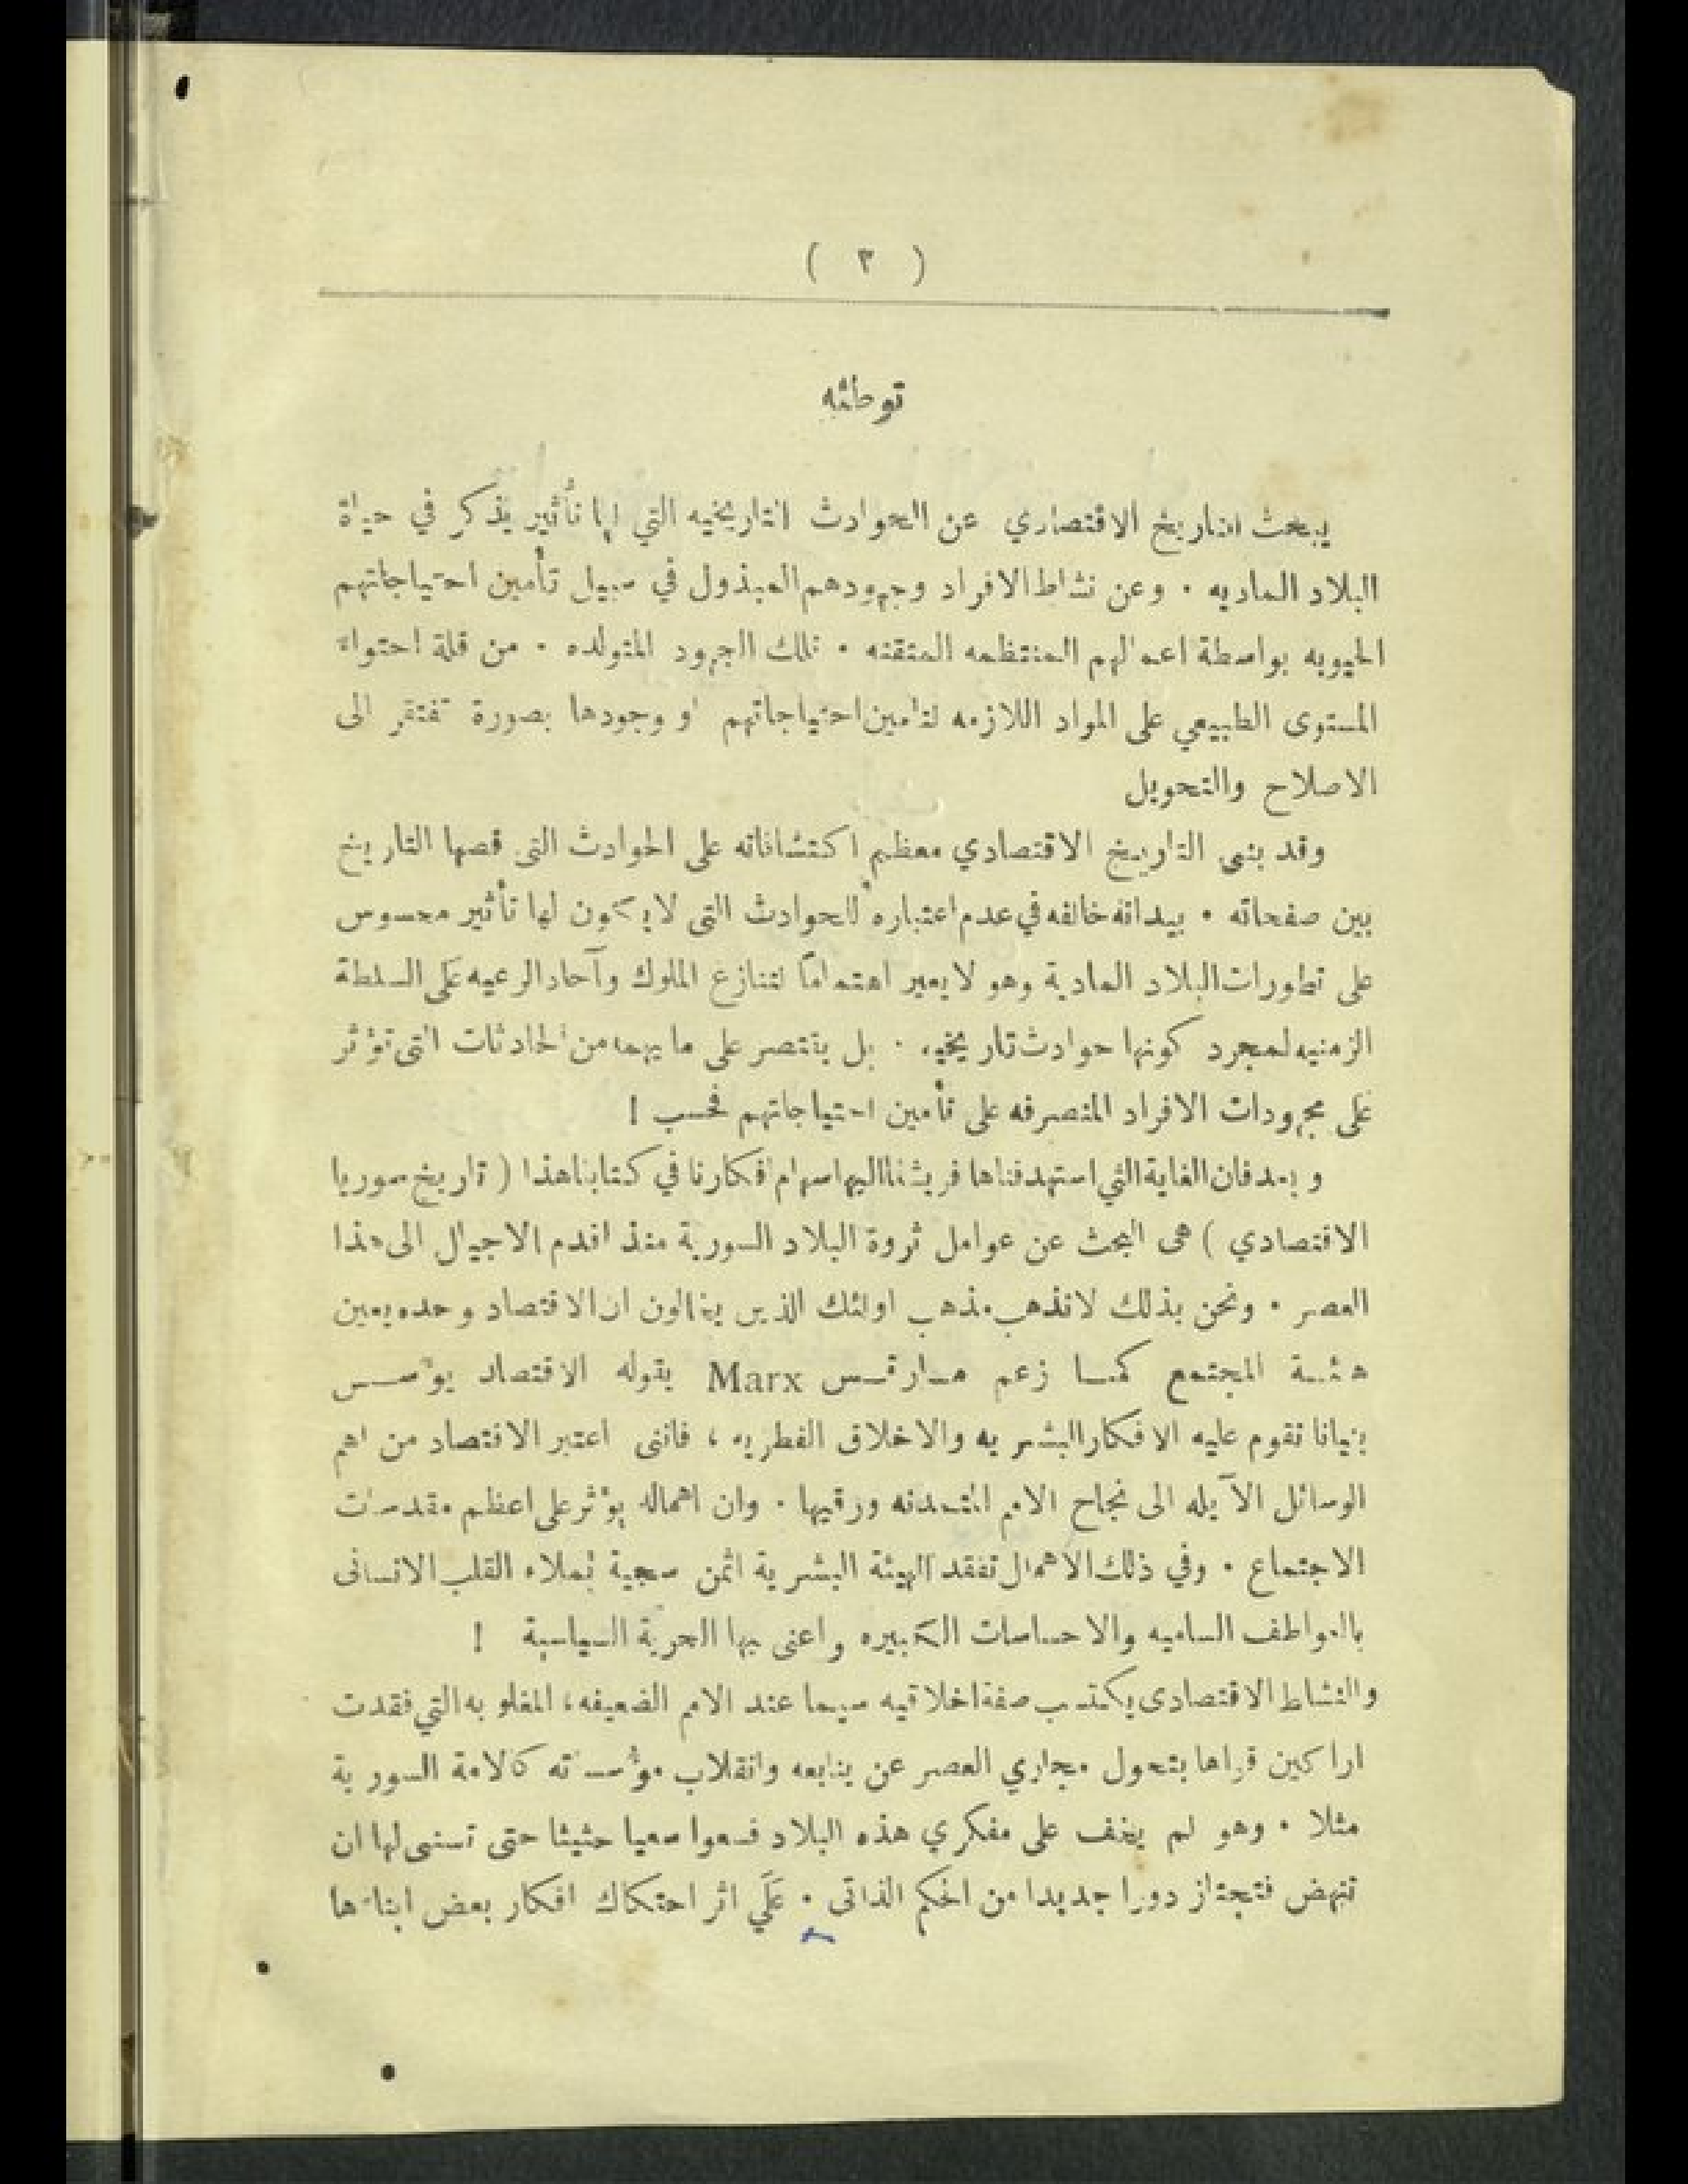 ( ٣ )
توطئه
يبحث التاريخ الاقتصادي عن الحوادث التاريخيه التي لها تأثير يذكر في حياة
البلاد الماديه . وعن نشاط الافراد وجهودهم المبذول في سبيل تأمين احتياجاتهم
الحيويه بواسطة اعمالهم المنتظمه المتقنه . تلك الجهود المتولده . من قلة احتواء
المستوى الطبيعي على المواد اللازمه لتامين احتياجاتهم او وجودها بصورة تفتقر الى
الاصلاح والتحويل
وقد بنى التاريخ الاقتصادي معظم اكتشافاته على الحوادث التى قصها التاريخ
بين صفحاته . بيدانه خالفه في عدم اعتباره للحوادث التى لا يكون لها تأثير محسوس
على تطورات البلاد المادية وهو لا يعير اهتماماً لتنازع الملوك وآحاد الرعيه على السلطة
الزمنيه لمجرد كونها حوادث تاريخيه . بل يقتصر على ما يهمه من الحادثات التى تؤثر
على مجهودات الافراد المنصرفه على تأمين احتياجاتهم فحسب !
وبعد فان الغاية التي استهدفناها فريشنا اليها سهام افكارنا في كتابنا هذا ( تاريخ سوريا
الاقتصادي ) هى البحث عن عوامل ثروة البلاد السورية منذ اقدم الاجيال الى هذا
العصر . ونحن بذلك لا نذهب مذهب اولئك الذين يخالون ان الاقتصاد وحده يعين
هئـة المجتمع كمـا زعم مـارقـس Marx بقوله الاقتصاد يؤسـس
بنيانا تقوم عليه الافكار البشريه والاخلاق الفطريه ، فاننى اعتبر الاقتصاد من اهم
الوسائل الآيله الى نجاح الامم المتمدنه ورقيها . وان اهماله يؤثر على اعظم مقدسات
الاجتماع . وفي ذلك الاهمال تفقد الهيئة البشرية اثمن سجية تملاء القلب الانسانى
بالعواطف الساميه والاحساسات الكبيره واعنى بها الحرية السياسية !
والنشاط الاقتصادى يكتسب صفة اخلاقيه سيما عند الامم الضعيفه ، المغلوبه التي فقدت
اراكين قراها بتحول مجاري العصر عن ينابعه وانقلاب مؤسساته كالامة السورية
مثلا . وهو لم يخف على مفكري هذه البلاد فسعوا سعيا حثيثا حتى تسنى لها ان
تنهض فتجتاز دورا جديدا من الحكم الذاتى . عَلَي اثر احتكاك افكار بعض ابناءها